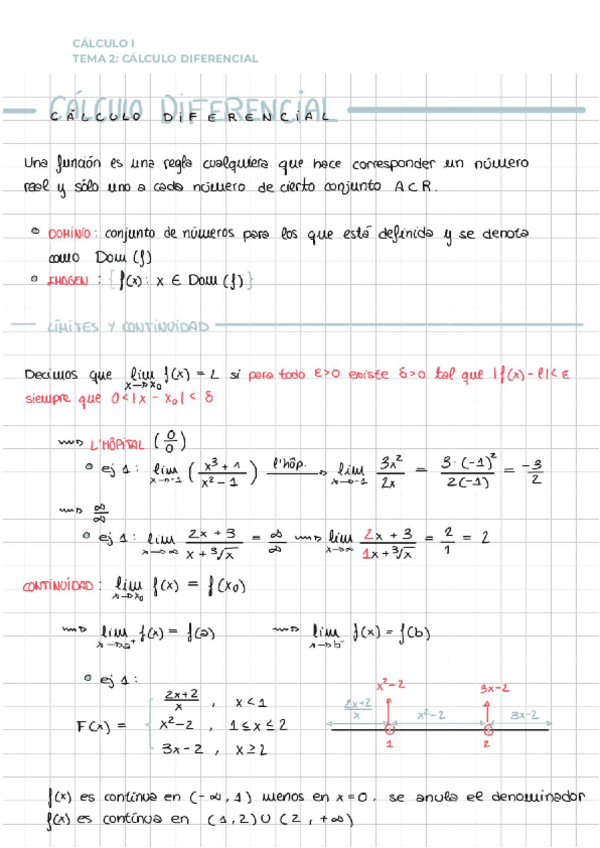 CÁLCULO I
TEMA 2: CÁLCULO DIFERENCIAL
CÁLCULO DIFERENCIAL
Una función es una regla cualquiera que hace corresponder un número
real y sólo uno a cada número de cierto conjunto A C R.
DOMINIO: conjunto de números para los que está definida y se denota
como Dom (f)
IMAGEN : {f(x): x ∈ Dom (f)}
LÍMITES Y CONTINUIDAD
Decimos que lim x→x₀ f(x) = L si para todo ε>0 existe δ>0 tal que |f(x) - l| < ε
siempre que 0<|x - x₀| < δ
⇝ L'HÔPITAL (0/0)
ej 1: lim x→-1 (x³+1 / x²-1) l'hôp. → lim x→-1 3x²/2x = 3·(-1)²/2(-1) = -3/2
⇝ ∞/∞
ej 1: lim x→∞ 2x+3 / x+³√x = ∞/∞ ⇝ lim x→∞ 2x+3 / 1x+³√x = 2/1 = 2
CONTINUIDAD: lim x→x₀ f(x) = f(x₀)
⇝ lim x→a⁺ f(x) = f(a) ⇝ lim x→b⁻ f(x) = f(b)
ej 1:
2x+2/x , x<1
F(x) = x²-2 , 1≤x≤2
3x-2 , x≥2
x²-2 3x-2
2x+2/x x²-2 3x-2
1 2
f(x) es continua en (-∞, 1) menos en x=0, se anula el denominador
f(x) es contínua en (1,2) U (2, +∞)